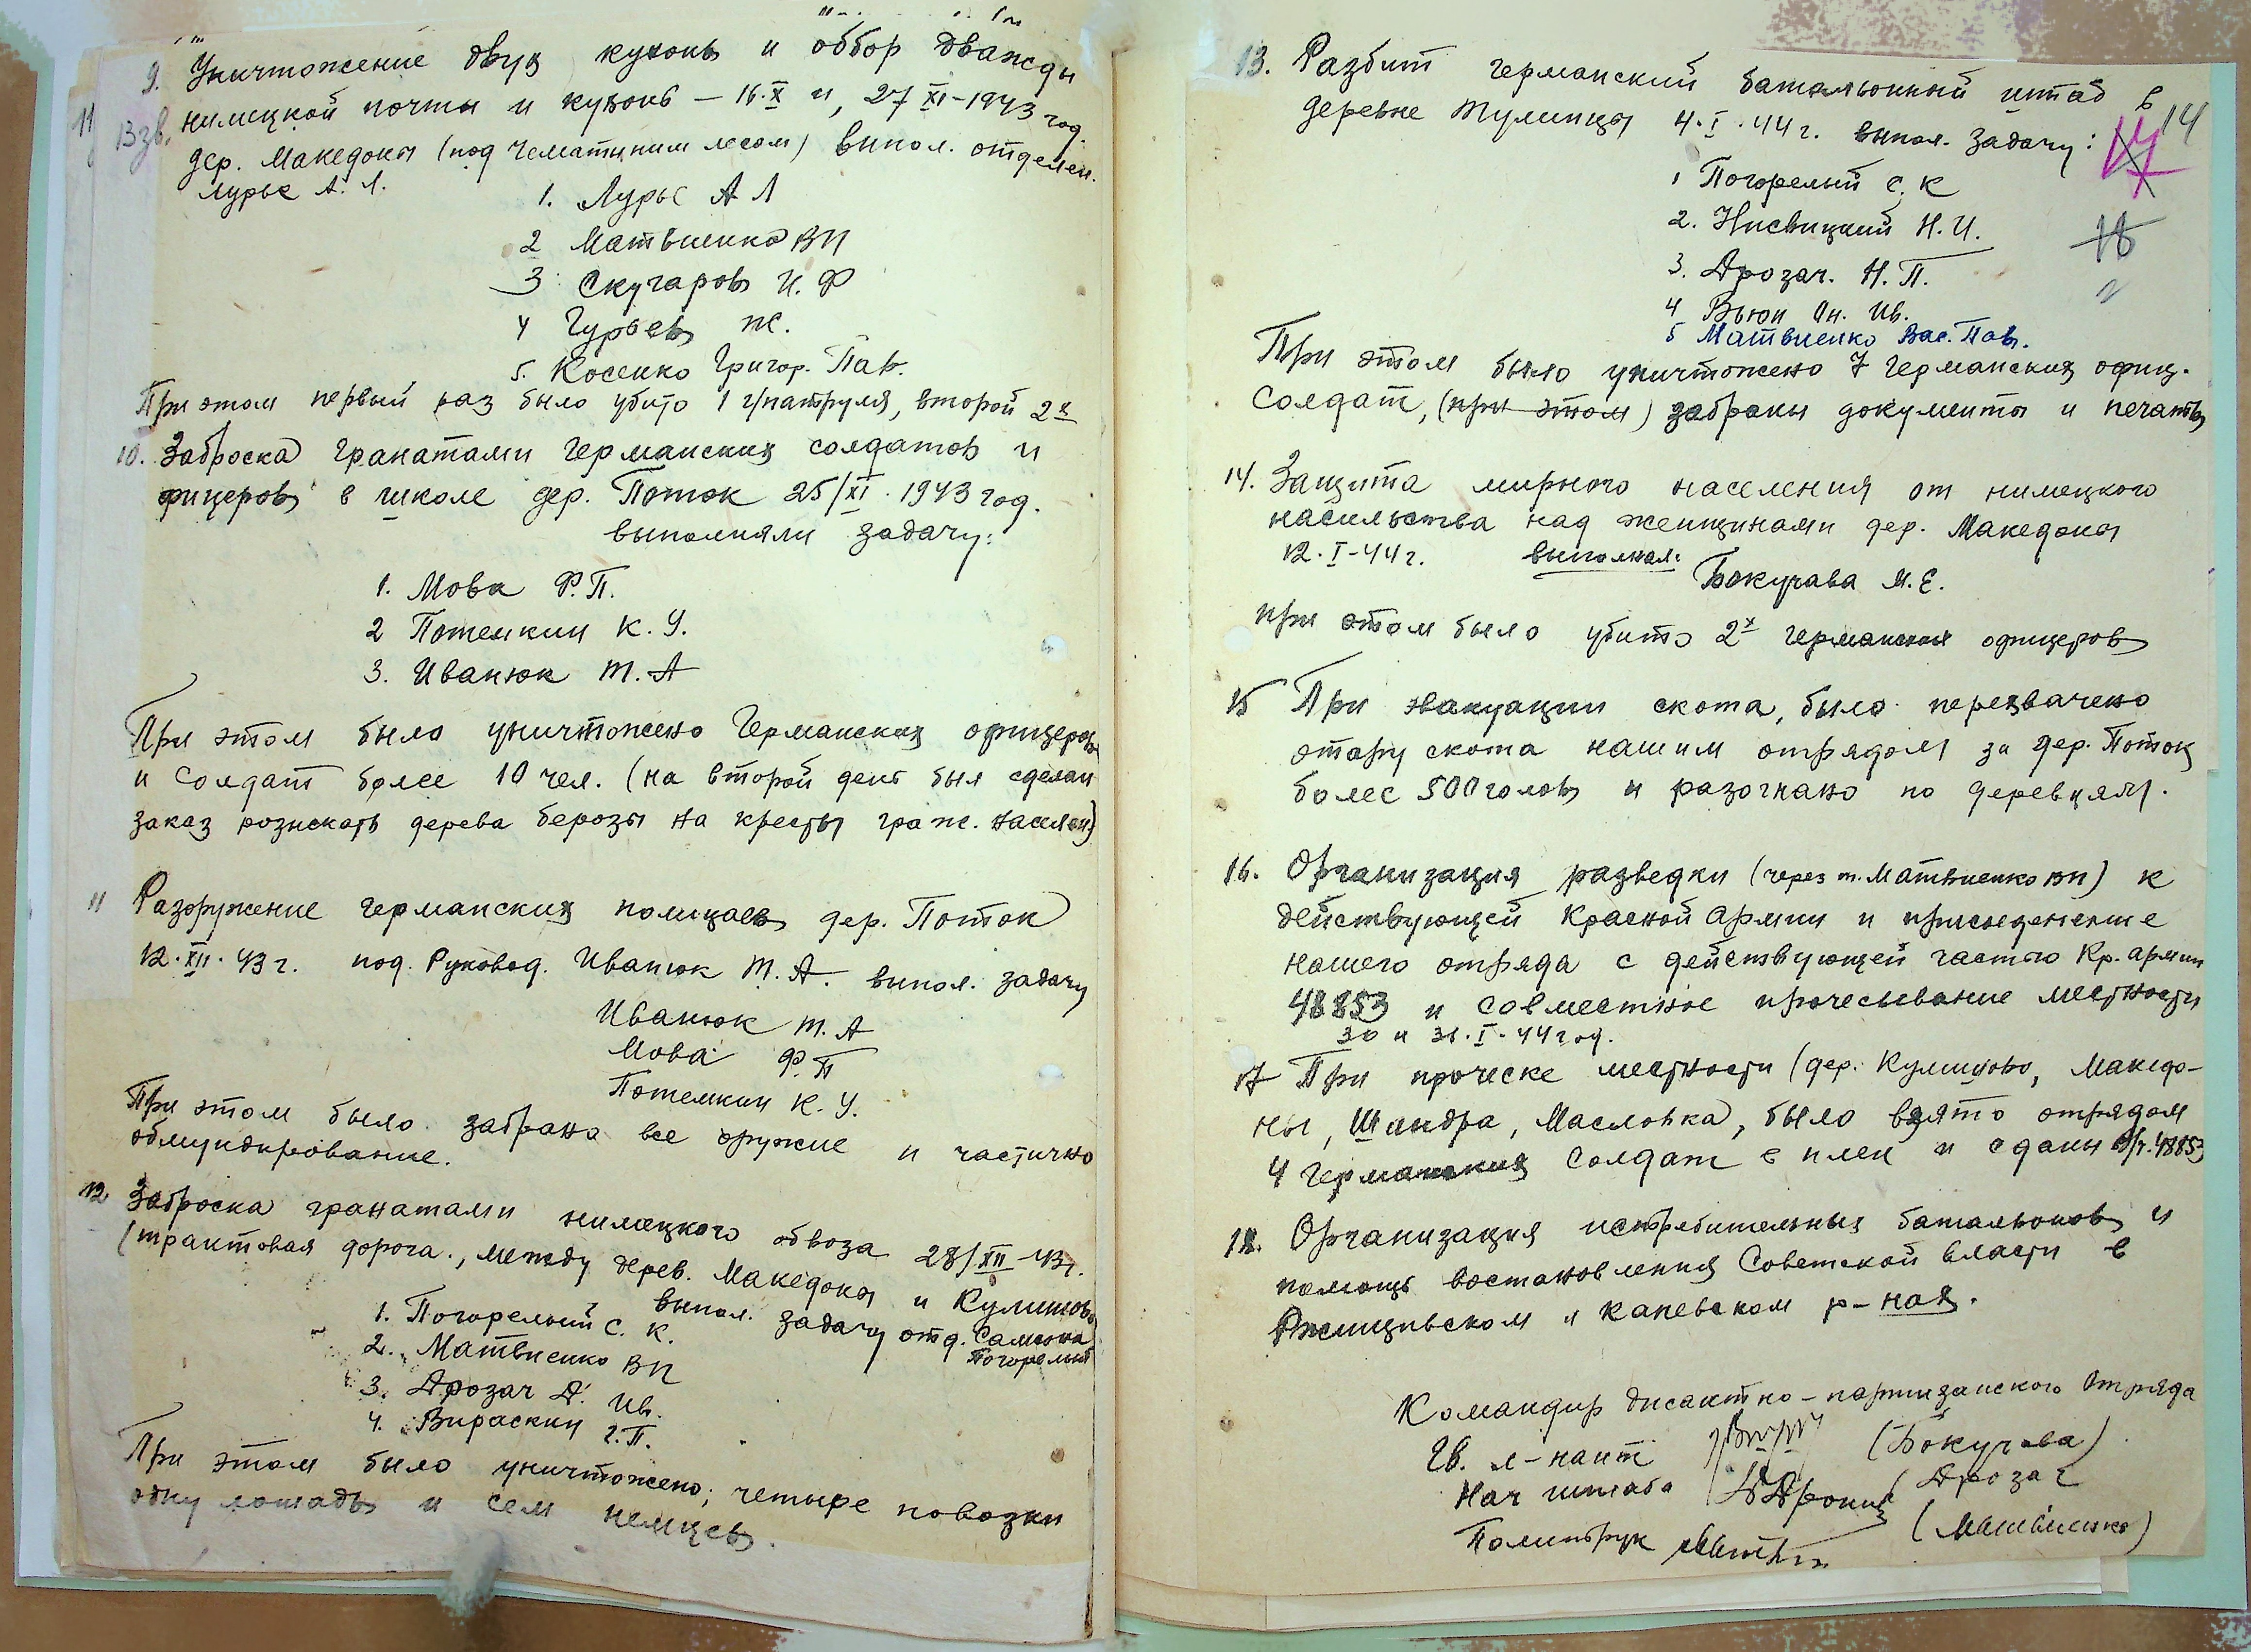 9. Уничтожение двух кухонь и оббор дважды
11 Взв. нимецкой почты и кухонь – 16.X и, 27 XI–1943 год.
дер. Македоны (под Чематиним лесом) выпол. отделен.
Лурье А. Л.
1. Лурье А Л
2 Матвиенко ВП
3 Скугаров И. Ф
4 Гурьев Ж.
5. Косенко Григор. Пав.
При этом первый раз было убито 1 г/патруля, второй 2х
10. Заброска гранатами Германских солдатов и
фицеров в школе дер. Поток 25/XI. 1943 год.
выполняли задачу:
1. Мова Ф.П.
2 Потемкин К. У.
3. Иванюк Т. А
При этом было уничтожено Германских офицеров
и солдат более 10 чел. (на второй день был сделан
заказ розискать дерева берозы на кресты граж. населен)
11 Разоружение германских полицаев дер. Поток
12.XII.43 г. под. Руковод. Иванюк Т. А. выпол. задачу
Иванюк Т. А
Мова Ф. П
Потемкин К. У.
При этом было забрано все оружие и частично
обмундирование.
12 Заброска гранатами нимецкого обвоза 28/XII–43г.
(трактовая дорога., между дерев. Македоны и Кулишово
выпол. задачу отд. Самсона
Погорелый
1. Погорелый С. К.
2. Матвиенко ВП
3. Дрозач Д. Ив.
4. Вираскин Г.П.
При этом было уничтожено; четыре повозки
одну лошадь и сем немцев.
13. Разбит германский баталъонный штаб в
деревне Тулинцы 4.I.44 г. выпол. задачу:
14
17
18
1 Погорелый С. К
2. Нисвицкий Н. И.
3. Дрозач. Н. П.
4 Вьюн Ан. Ив.
5 Матвиенко Вас. Пав.
При этом было уничтожено 7 Германских офиц.
Солдат, (при этом) забраны документы и печать
14. Защита мирного населения от нимецкого
насильства над женщинами дер. Македоны
12.I–44 г. выполнял:
Бокучава М. Е.
при этом было убито 2х германских офицеров
15 При эвакуации скота, было перехвачено
отару скота нашим отрядом за дер. Поток
более 500 голов и разогнано по деревням.
16. Организация разведки (через т. Матвиенко ВП) к
действующей Красной Армии и присоеденение
нашего отряда с действующей частью Кр. армии
48853 и совместное прочесывание местности
30 и 31.I.44 год.
17 При проческе местности (дер. Кулишово, Македо-
ны, Шандра, Масловка, было взято отрядом
4 Германских Солдат в плен и сданы в/ч.48853
18. Организация истребительных батальонов и
помощь востановления Советской власти в
Ржищивском и Каневском р-нах.
Командир дисантно–партизанского отряда
Гв. л-нант (Бокучава)
Нач штаба (Дрозач
Политрук (Матвиенко)